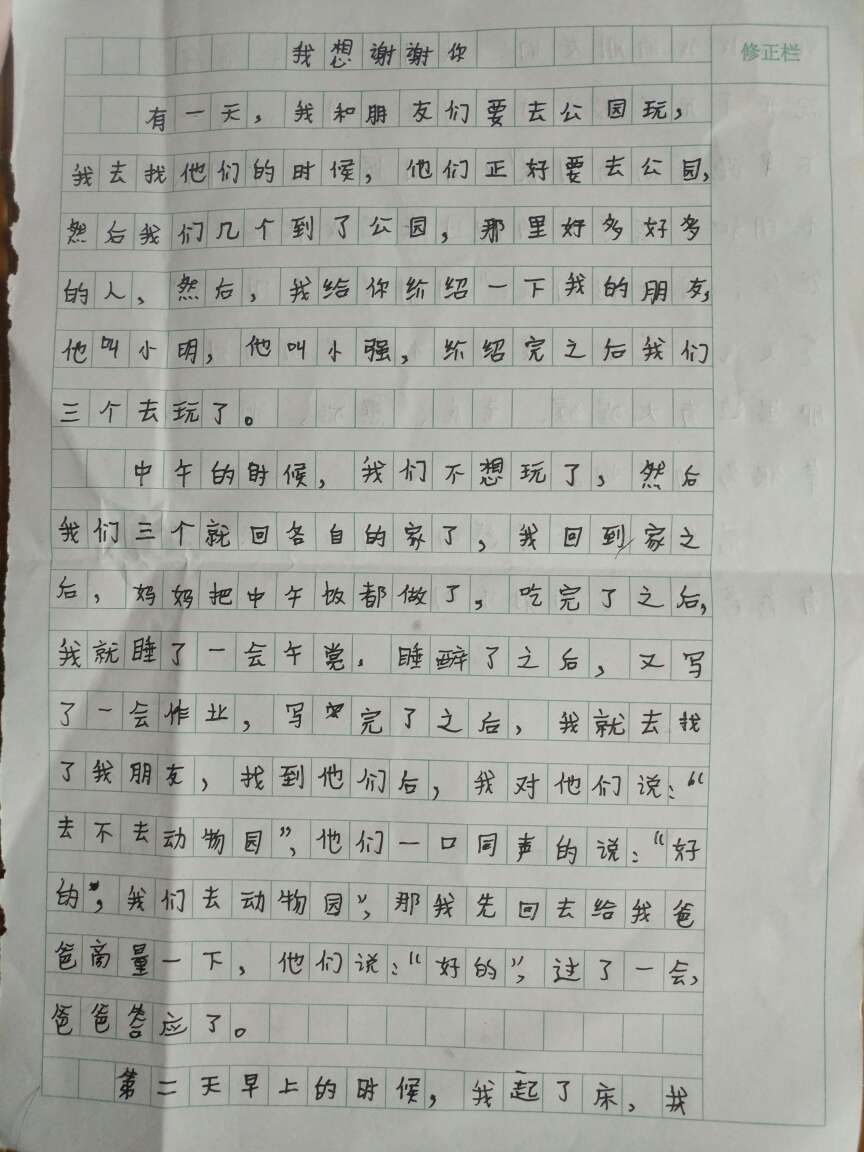 我想谢谢你
修正栏
有一天，我和朋友们要去公园玩，
我去找他们的时候，他们正好要去公园，
然后我们几个到了公园，那里好多好多
的人、然后，我给你介绍一下我的朋友，
他叫小明，他叫小强，介绍完之后我们
三个去玩了。
中午的时候，我们不想玩了，然后
我们三个就回各自的家了，我回到家之
后，妈妈把中午饭都做了，吃完了之后，
我就睡了一会午觉．睡醉了之后，又写
了一会作业，写完了之后，我就去找
了我朋友，找到他们后，我对他们说：“
去不去动物园”，他们一口同声的说：“好
的”，我们去动物园”，那我先回去给我爸
爸商量一下，他们说：“好的”，过了一会，
爸爸答应了。
第二天早上的时候，我起了床，我